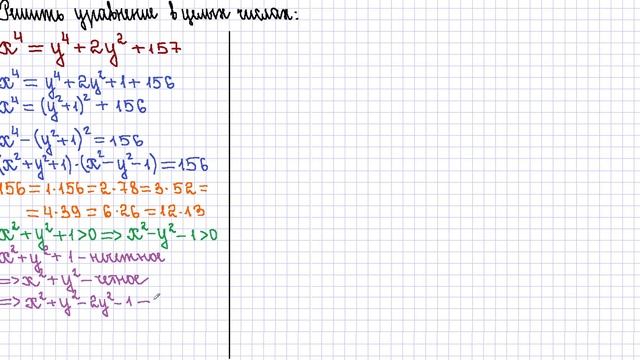 Решить уравнение в целых числах:
x⁴ = y⁴ + 2y² + 157
x⁴ = y⁴ + 2y² + 1 + 156
x⁴ = (y² + 1)² + 156
x⁴ - (y² + 1)² = 156
(x² + y² + 1) · (x² - y² - 1) = 156
156 = 1 · 156 = 2 · 78 = 3 · 52 =
= 4 · 39 = 6 · 26 = 12 · 13
x² + y² + 1 > 0 ⇒ x² - y² - 1 > 0
x² + y² + 1 - нечетное
⇒ x² + y² - четное
⇒ x² + y² - 2y² - 1 -